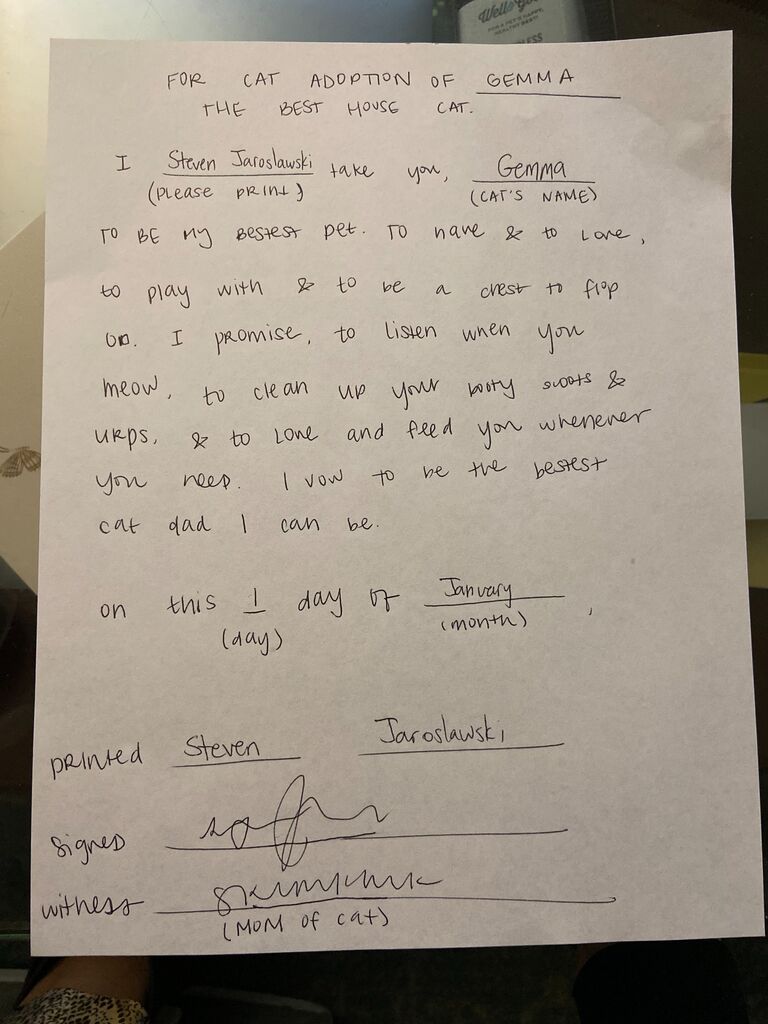 Wellness
FOR A PET'S HAPPY,
HEALTHY BEST!
FOR CAT ADOPTION OF GEMMA
THE BEST HOUSE CAT.
I Steven Jaroslawski take you, Gemma
(please print) (CAT'S NAME)
TO BE MY BESTEST pet. TO have & to LOVE,
to play with & to be a chest to flop
on. I promise, to listen when you
meow, to clean up your booty scoots &
URPS, & to LOVE and feed you whenever
you need. I vow to be the bestest
cat dad I can be.
on this 1 day of January,
(day) (month)
printed Steven Jaroslawski
signed
witness
(MOM of cat)